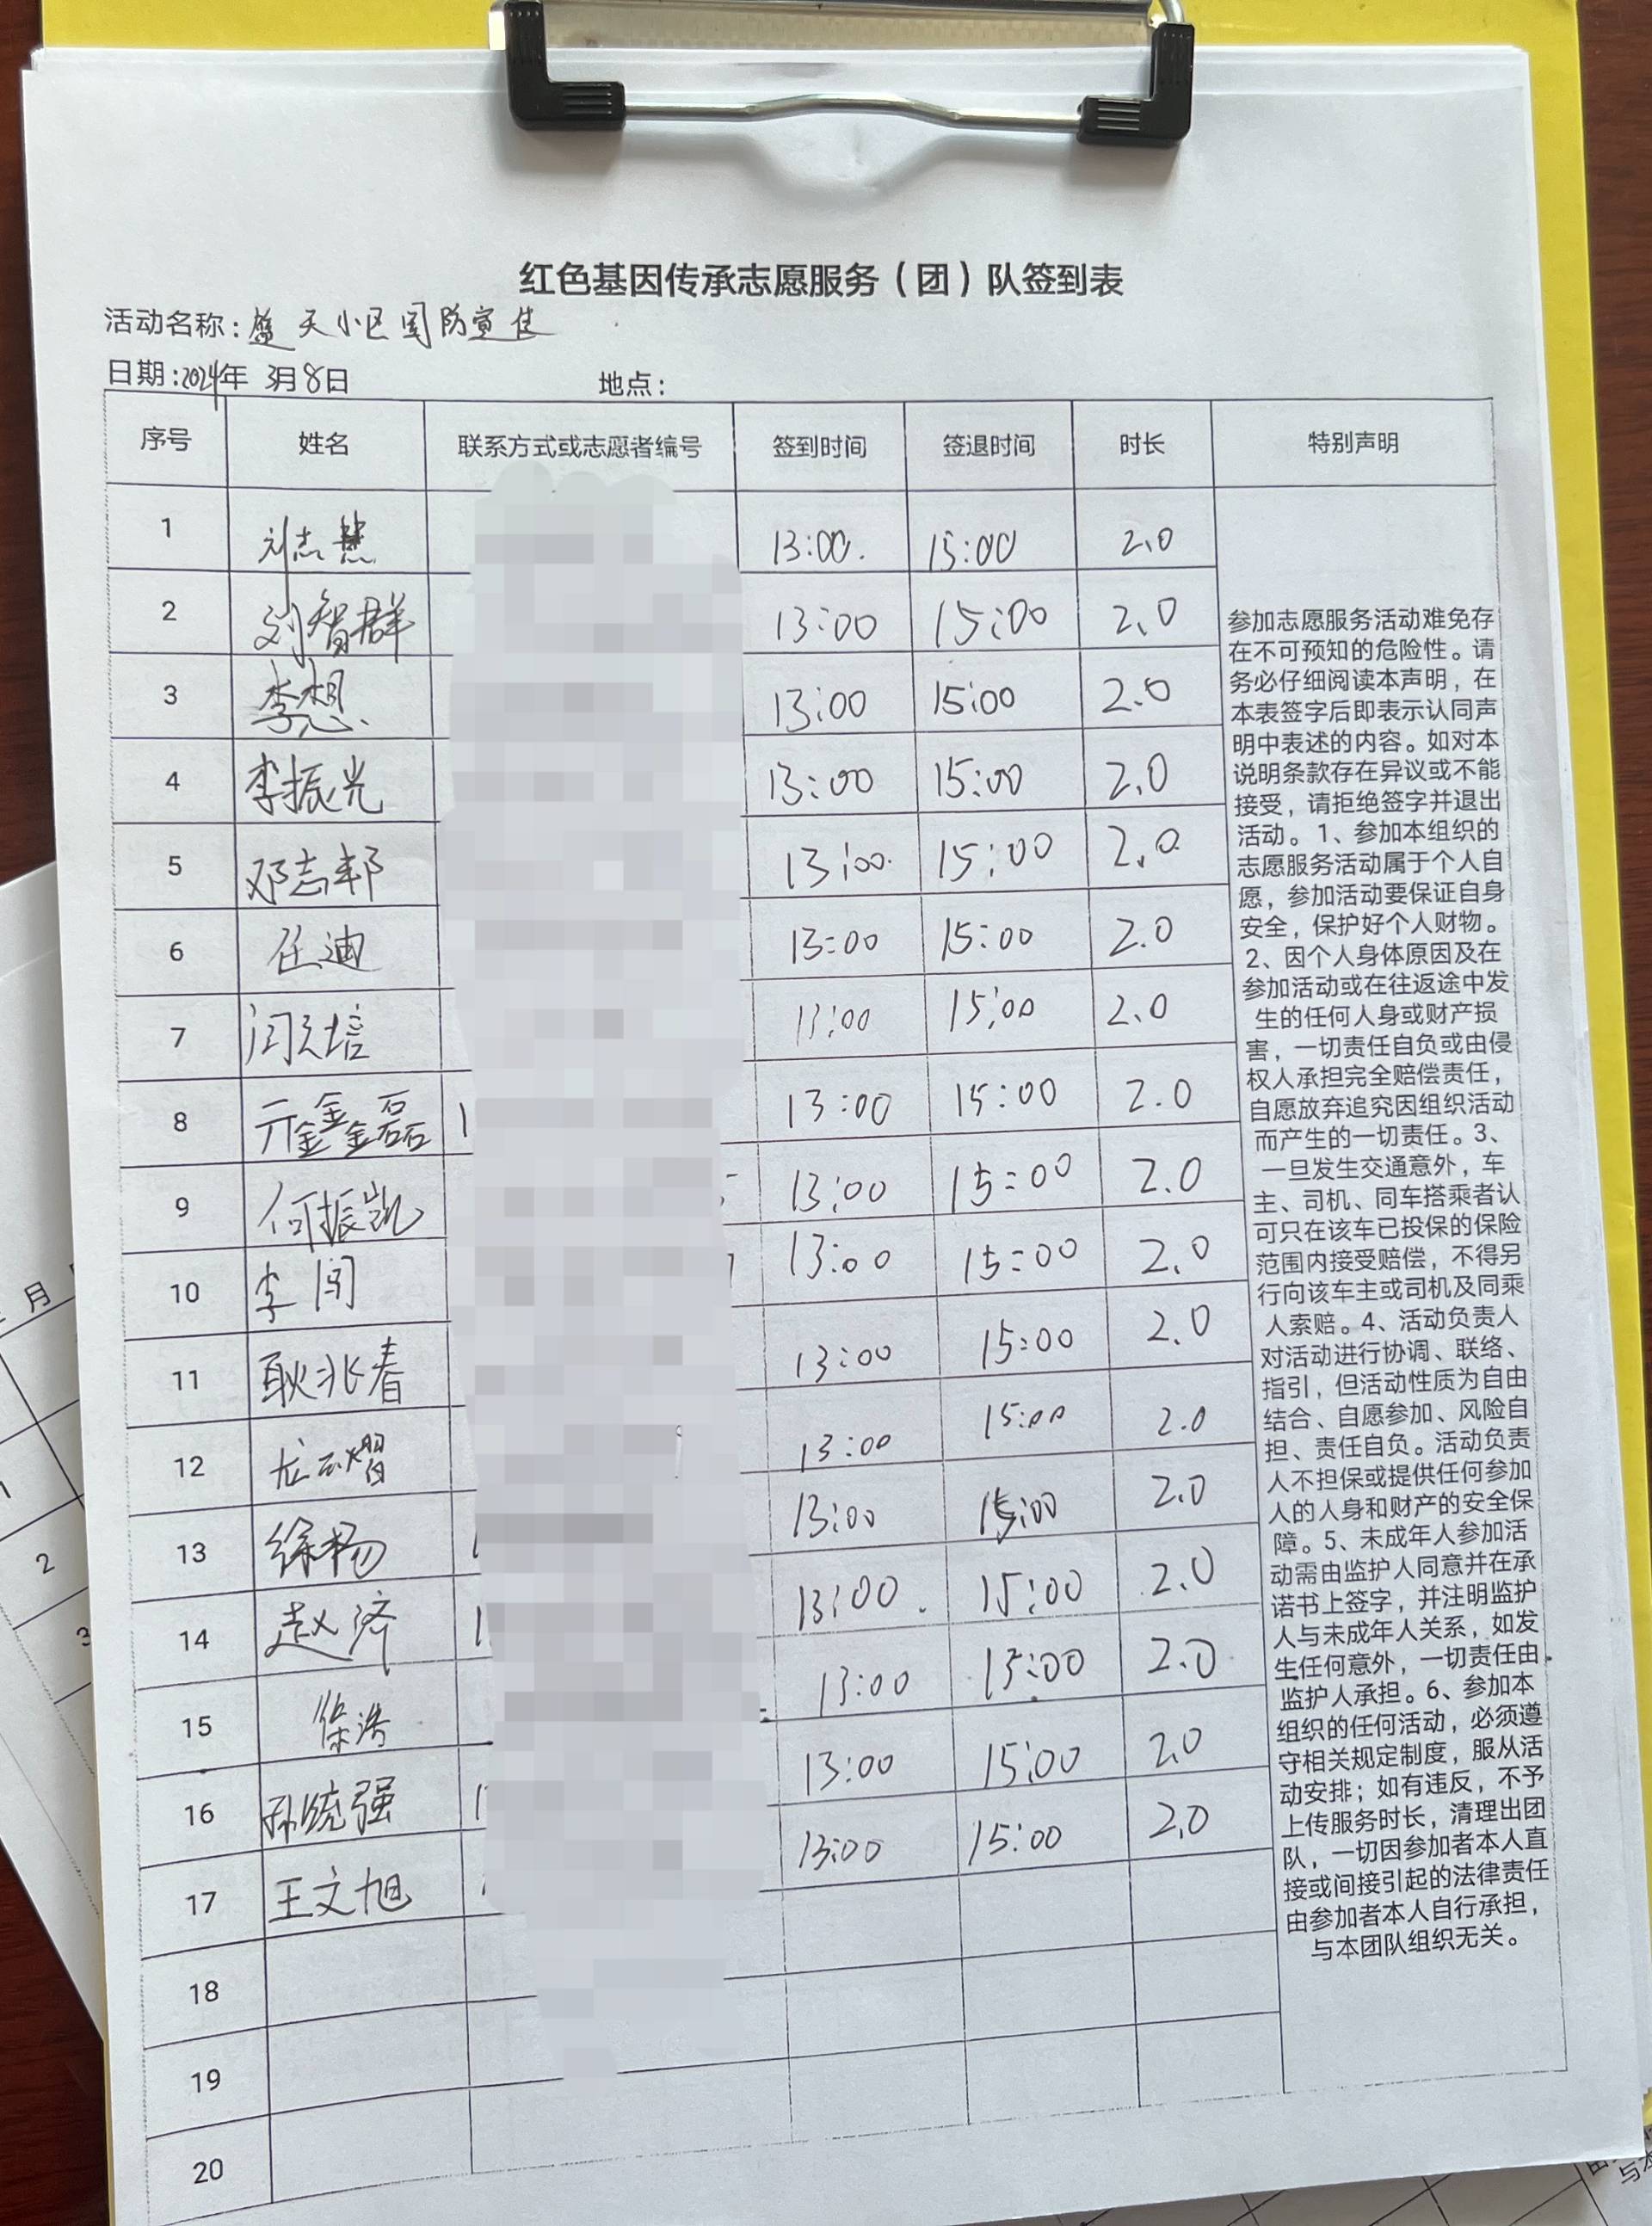 红色基因传承志愿服务（团）队签到表
活动名称：蓝天小区国防宣传
日期：2024年 3月8日 地点：
序号 姓名 联系方式或志愿者编号 签到时间 签退时间 时长 特别声明
1 刘志慧 13:00. 15:00 2.0
2 刘智群 13:00 15:00 2.0
3 李想 13:00 15:00 2.0
4 李振光 13:00 15:00 2.0
5 邓志邦 13:00. 15:00 2.0
6 任迪 13:00 15:00 2.0
7 培 13:00 15:00 2.0
8 亓鑫磊 13:00 15:00 2.0
9 何振凯 13:00 15:00 2.0
10 李闯 13:00 15:00 2.0
11 耿兆春 13:00 15:00 2.0
12 熠 13:00 15:00 2.0
13 徐杨 13:00 15:00 2.0
14 赵济 13:00 15:00 2.0
15 浩 13:00 15:00 2.0
16 孙统强 13:00 15:00 2.0
17 王文旭 13:00 15:00 2.0
18
19
20
参加志愿服务活动难免存
在不可预知的危险性。请
务必仔细阅读本声明，在
本表签字后即表示认同声
明中表述的内容。如对本
说明条款存在异议或不能
接受，请拒绝签字并退出
活动。1、参加本组织的
志愿服务活动属于个人自
愿，参加活动要保证自身
安全，保护好个人财物。
2、因个人身体原因及在
参加活动或在往返途中发
生的任何人身或财产损
害，一切责任自负或由侵
权人承担完全赔偿责任，
自愿放弃追究因组织活动
而产生的一切责任。3、
一旦发生交通意外，车
主、司机、同车搭乘者认
可只在该车已投保的保险
范围内接受赔偿，不得另
行向该车主或司机及同乘
人索赔。4、活动负责人
对活动进行协调、联络、
指引，但活动性质为自由
结合、自愿参加、风险自
担、责任自负。活动负责
人不担保或提供任何参加
人的人身和财产的安全保
障。5、未成年人参加活
动需由监护人同意并在承
诺书上签字，并注明监护
人与未成年人关系，如发
生任何意外，一切责任由
监护人承担。6、参加本
组织的任何活动，必须遵
守相关规定制度，服从活
动安排；如有违反，不予
上传服务时长，清理出团
队，一切因参加者本人直
接或间接引起的法律责任
由参加者本人自行承担，
与本团队组织无关。
月
1
2
3